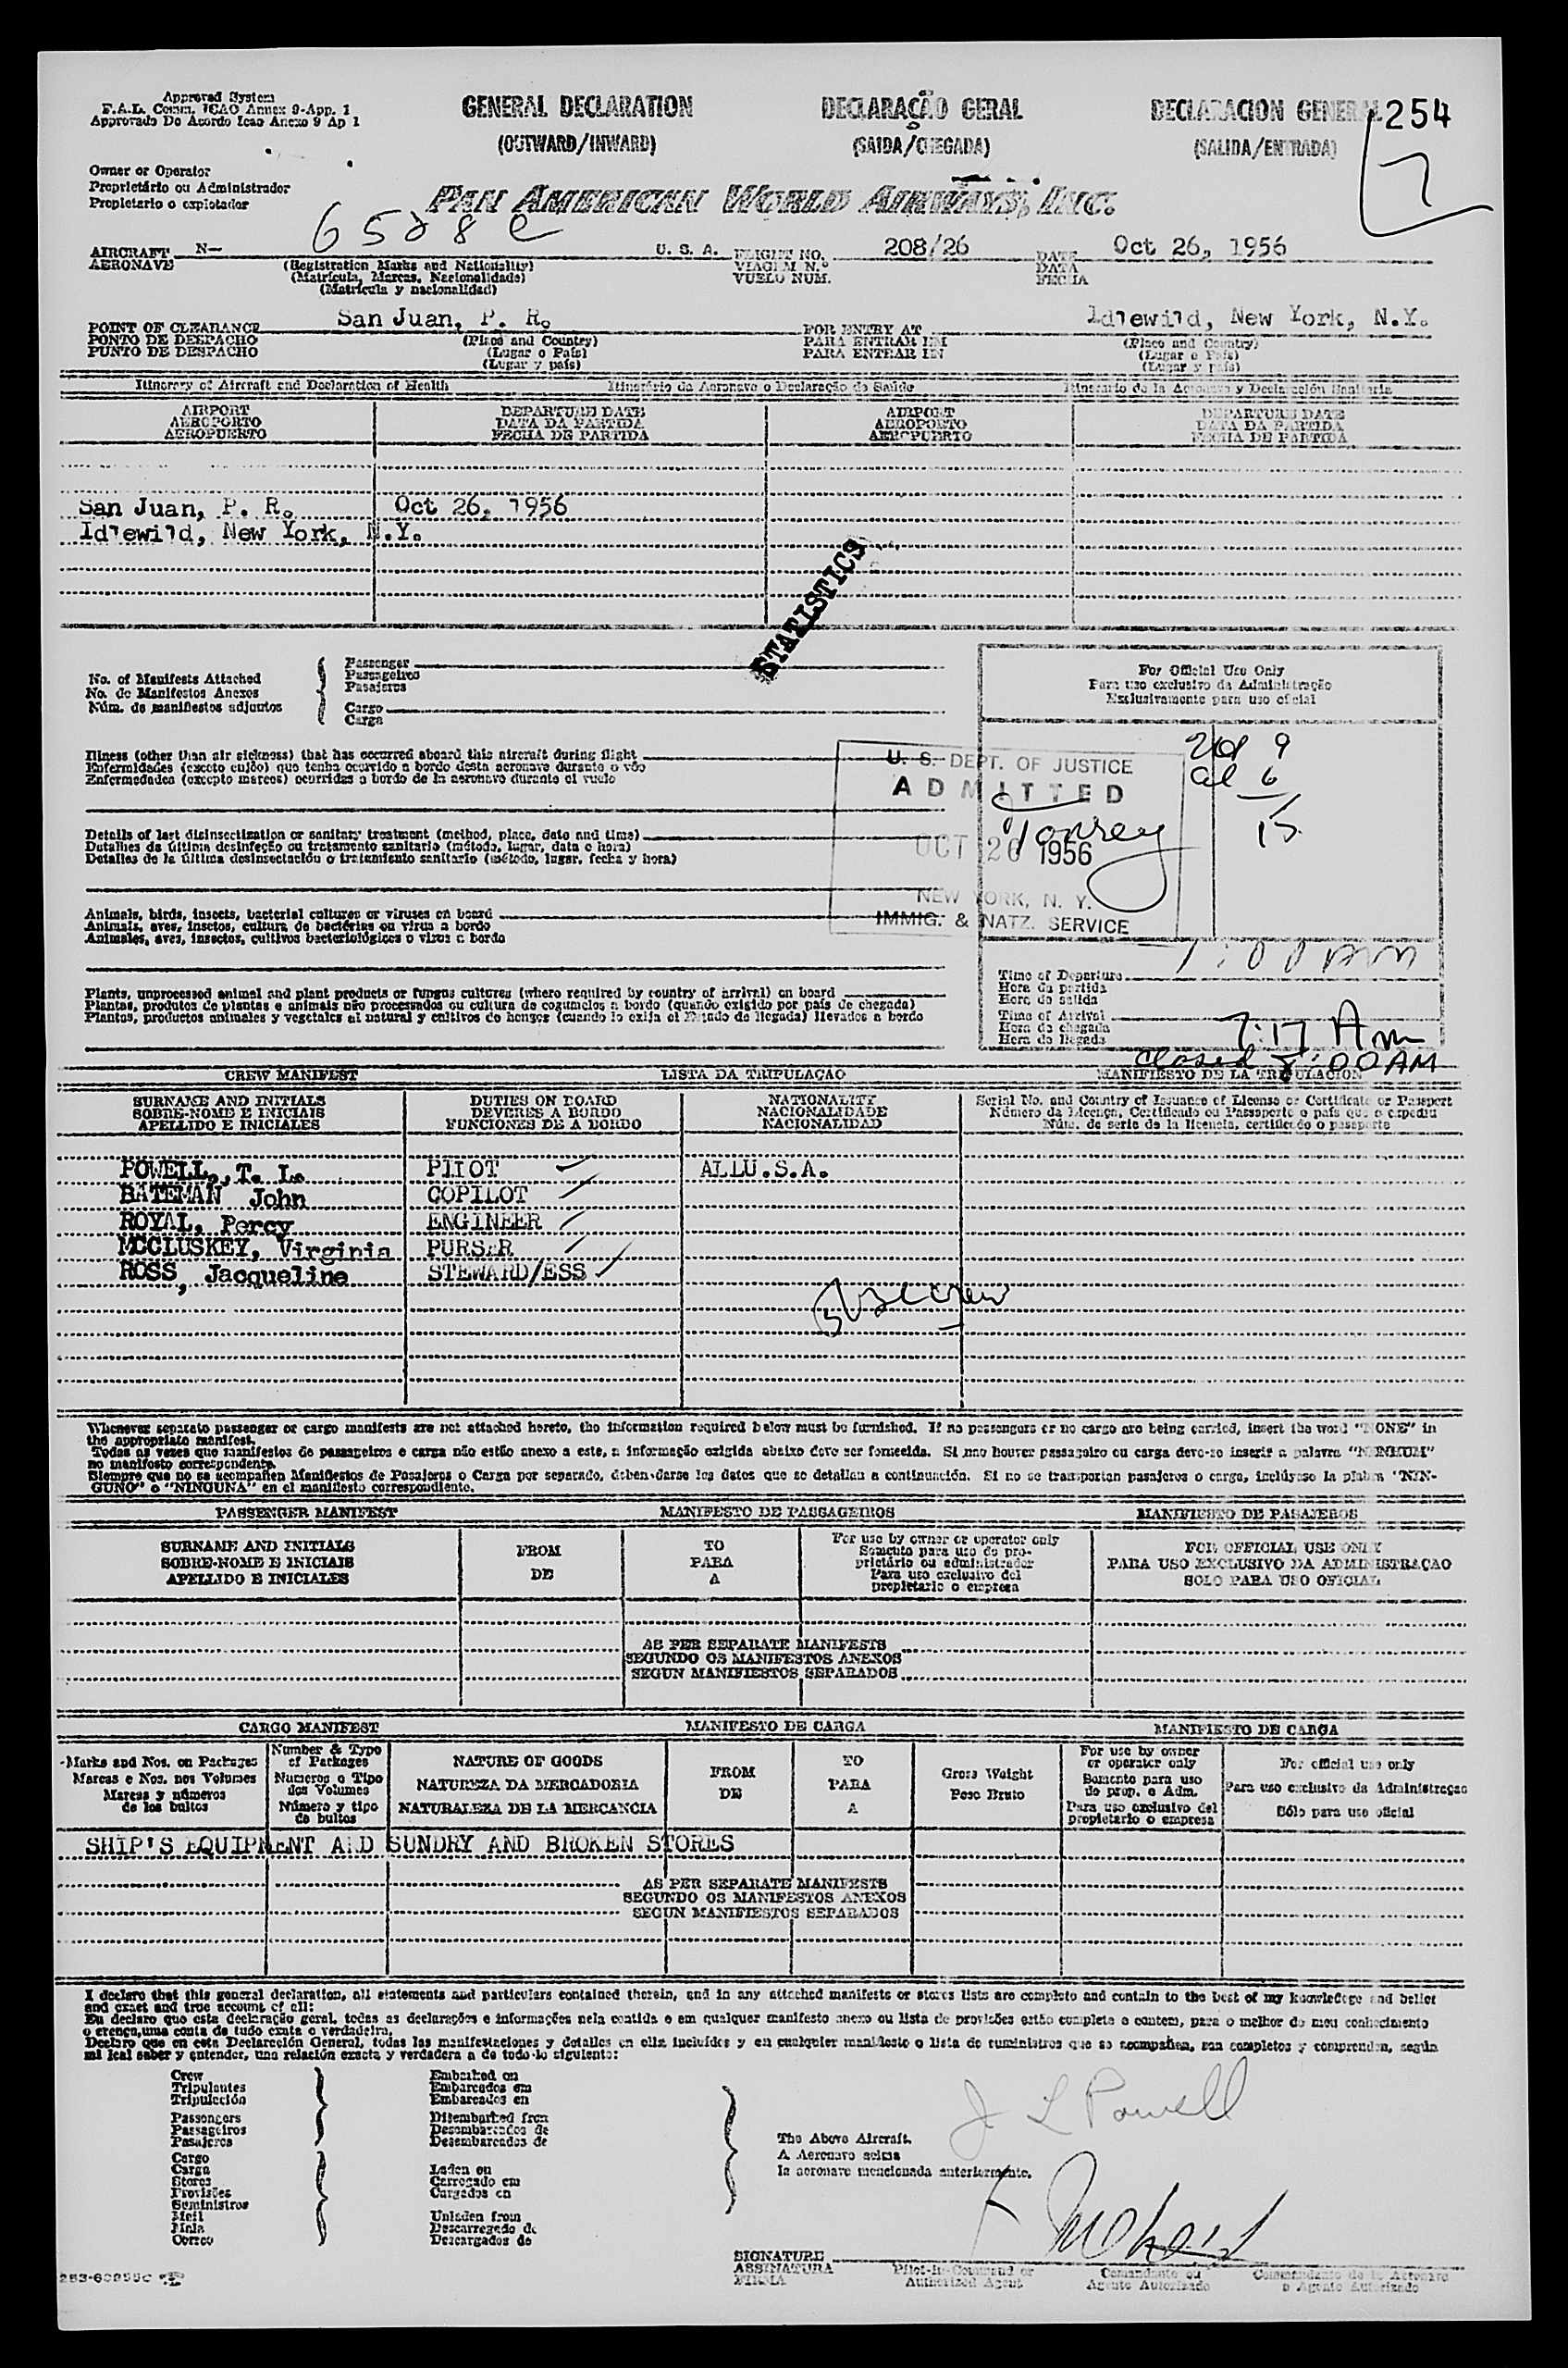 Approved System
F.A.L. Comm. ICAO Annex 9-App. 1
Approvado Do Acordo Icao Anexo 9 Ap 1
GENERAL DECLARATION
(OUTWARD/INWARD)
DECLARAÇÃO GERAL
(SAIDA/CHEGADA)
DECLARACION GENERAL
(SALIDA/ENTRADA)
254
Owner or Operator
Proprietário ou Administrador
Propietario o explotador
PAN AMERICAN WORLD AIRWAYS, INC.
AIRCRAFT N—
AERONAVE
U. S. A.
(Registration Marks and Nationality)
(Matrícula, Marcas, Nacionalidade)
(Matrícula y nacionalidad)
FLIGHT NO. 208/26
VIAGEM N.º
VUELO NUM.
DATE Oct 26, 1956
DATA
FECHA
POINT OF CLEARANCE San Juan, P. R.
PONTO DE DESPACHO
PUNTO DE DESPACHO
(Place and Country)
(Lugar o País)
(Lugar y país)
FOR ENTRY AT Idlewild, New York, N.Y.
PARA ENTRAR EM
PARA ENTRAR EN
(Place and Country)
(Lugar e País)
(Lugar y país)
Itinerary of Aircraft and Declaration of Health
Itinerário da Aeronave e Declaração de Saúde
Itinerario de la Aeronave y Declaración Sanitaria
AIRPORT
AEROPORTO
AEROPUERTO
DEPARTURE DATE
DATA DA PARTIDA
FECHA DE PARTIDA
AIRPORT
AEROPORTO
AEROPUERTO
DEPARTURE DATE
DATA DA PARTIDA
FECHA DE PARTIDA
San Juan, P. R. Oct 26, 1956
Idlewild, New York, N.Y.
STATISTICS
No. of Manifests Attached
No. de Manifestos Anexos
Núm. de manifiestos adjuntos
Passenger
Passageiros
Pasajeros
Cargo
Carga
For Official Use Only
Para uso exclusivo da Administração
Exclusivamente para uso oficial
9
6
15
Illness (other than air sickness) that has occurred aboard this aircraft during flight
Enfermidades (exceto enjôo) que tenha ocorrido a bordo desta aeronave durante o vôo
Enfermedades (excepto mareos) ocurridas a bordo de la aeronave durante el vuelo
U. S. DEPT. OF JUSTICE
ADMITTED
OCT 26 1956
NEW YORK, N. Y.
IMMIG. & NATZ. SERVICE
Details of last disinsectization or sanitary treatment (method, place, date and time)
Detalhes da última desinfeção ou tratamento sanitario (método, lugar, data e hora)
Detalles de la última desinsectación o tratamiento sanitario (método, lugar, fecha y hora)
Animals, birds, insects, bacterial cultures or viruses on board
Animais, aves, insetos, cultura de bactérias ou virus a bordo
Animales, aves, insectos, cultivos bacteriológicos o virus a bordo
Plants, unprocessed animal and plant products or fungus cultures (where required by country of arrival) on board
Plantas, produtos de plantas e animais não processados ou cultura de cogumelos a bordo (quando exigido por país de chegada)
Plantas, productos animales y vegetales al natural y cultivos de hongos (cuando lo exija el Estado de llegada) llevados a bordo
Time of Departure 1:00 am
Hora da partida
Hora de salida
Time of Arrival 7:17 Am
Hora da chegada
Hora de llegada
closed 8:00 AM
CREW MANIFEST
LISTA DA TRIPULAÇAO
MANIFIESTO DE LA TRIPULACION
SURNAME AND INITIALS
SOBRE-NOME E INICIAIS
APELLIDO E INICIALES
DUTIES ON BOARD
DEVERES A BORDO
FUNCIONES DE A BORDO
NATIONALITY
NACIONALIDADE
NACIONALIDAD
Serial No. and Country of Issuance of License or Certificate or Passport
Número da Licença, Certificado ou Passaporte e país que o expediu
Núm. de serie de la licencia, certificado o pasaporte
POWELL,,T. L. PILOT ALLU.S.A.
BATEMAN John COPILOT
ROYAL, Percy ENGINEER
MCCLUSKEY, Virginia PURSER
ROSS, Jacqueline STEWARD/ESS
Whenever separate passenger or cargo manifests are not attached hereto, the information required below must be furnished. If no passengers or no cargo are being carried, insert the word "NONE" in
the appropriate manifest.
Todas as vezes que manifestos de passageiros e carga não estão anexo a este, a informação exigida abaixo deve ser fornecida. Si nao houver passageiro ou carga deve-se inserir a palavra "NENHUM"
no manifesto correspondente.
Siempre que no se acompañen Manifiestos de Pasajeros o Carga por separado, deben darse los datos que se detallan a continuación. Si no se transportan pasajeros o cargo, inclúyase la plabra "NIN-
GUNO" o "NINGUNA" en el manifiesto correspondiente.
PASSENGER MANIFEST
MANIFESTO DE PASSAGEIROS
MANIFIESTO DE PASAJEROS
SURNAME AND INITIALS
SOBRE-NOME E INICIAIS
APELLIDO E INICIALES
FROM
DE
TO
PARA
A
For use by owner or operator only
Somente para uso do pro-
prietário ou administrador
Para uso exclusivo del
propietario o empresa
FOR OFFICIAL USE ONLY
PARA USO EXCLUSIVO DA ADMINISTRAÇAO
SOLO PARA USO OFICIAL
AS PER SEPARATE MANIFESTS
SEGUNDO OS MANIFESTOS ANEXOS
SEGUN MANIFIESTOS SEPARADOS
CARGO MANIFEST
MANIFESTO DE CARGA
MANIFIESTO DE CARGA
Marks and Nos. on Packages
Marcas e Nos. nos Volumes
Marcas y números
de los bultos
Number & Type
of Packages
Numeros e Tipo
dos Volumes
Número y tipo
de bultos
NATURE OF GOODS
NATUREZA DA MERCADORIA
NATURALEZA DE LA MERCANCIA
FROM
DE
TO
PARA
A
Gross Weight
Peso Bruto
For use by owner
or operator only
Somente para uso
do prop. e Adm.
Para uso exclusivo del
propietario o empresa
For official use only
Para uso exclusivo da Administraçao
Sólo para uso oficial
SHIP'S EQUIPMENT AND SUNDRY AND BROKEN STORES
AS PER SEPARATE MANIFESTS
SEGUNDO OS MANIFESTOS ANEXOS
SEGUN MANIFIESTOS SEPARADOS
I declare that this general declaration, all statements and particulars contained therein, and in any attached manifests or stores lists are complete and contain to the best of my knowledge and belief
and exact and true account of all:
Eu declaro que esta declaração geral, todas as declarações e informações nela contida e em qualquer manifesto anexo ou lista de provisões estão completa e contem, para o melhor do meu conhecimento
o crença,uma conta de tudo exata e verdadeira.
Declaro que en esta Declarción General, todas las manifestaciones y detalles en ella incluídos y en cualquier manifiesto o lista de suministros que se acompañen, son completos y comprenden, según
mi leal saber y entender, una relación exacta y verdadera a de todo lo siguiente:
Crew
Tripulantes
Tripulación
Passengers
Passageiros
Pasajeros
Cargo
Carga
Stores
Provisões
Suministros
Mail
Mala
Correo
Embarked on
Embarcados em
Embarcados en
Disembarked from
Desembarcados de
Desembarcados de
Laden on
Carregado em
Cargados en
Unladen from
Descarregado de
Descargados de
The Above Aircraft.
A Aeronave acima
la aeronave mencionada anteriormente.
J L Powell
SIGNATURE
ASSINATURA
FIRMA
Pilot-in-Command or
Authorized Agent
Comandante ou
Agente Autorizado
Commandante de la Aeronave
o Agente Autorizado